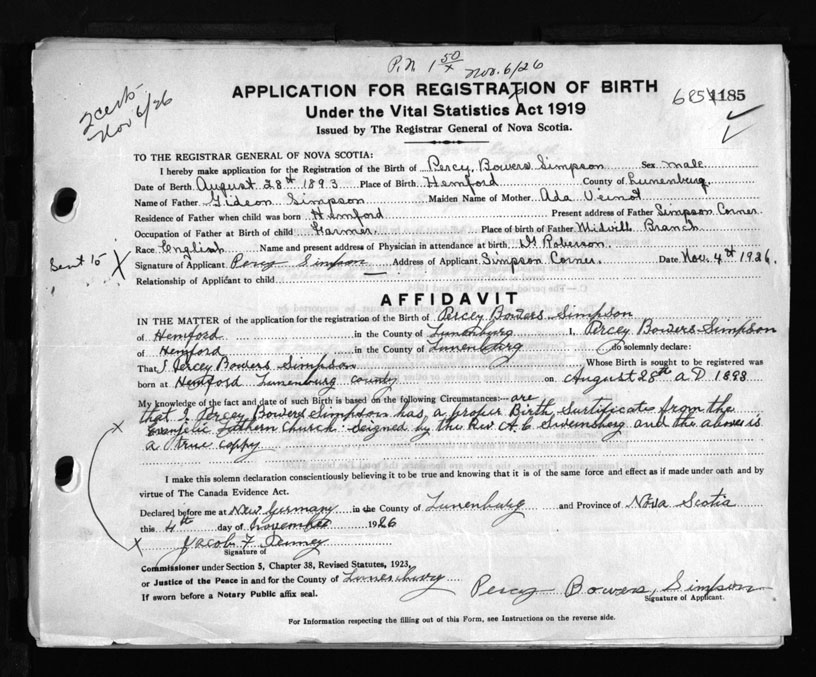 P.N. 1 50/x Nov. 6/26
2 certs Nov 6/26
APPLICATION FOR REGISTRATION OF BIRTH
6854 1185
Under the Vital Statistics Act 1919
Issued by The Registrar General of Nova Scotia.
TO THE REGISTRAR GENERAL OF NOVA SCOTIA:
I hereby make application for the Registration of the Birth of Percy Bowers Simpson Sex male
Date of Birth August 28th 1893 Place of Birth Hemford County of Lunenburg.
Name of Father Gideon Simpson Maiden Name of Mother Ada Veinot
Residence of Father when child was born Hemford Present address of Father Simpson Corner.
Occupation of Father at Birth of child Farmer. Place of birth of Father Midvill Branch
Race English Name and present address of Physician in attendance at birth Dr Roberson.
Sent 15 X
Signature of Applicant Percy Simpson Address of Applicant Simpson Corner. Date Nov. 4th 1926.
Relationship of Applicant to child —
AFFIDAVIT
IN THE MATTER of the application for the registration of the Birth of Percey Bowers Simpson
of Hemford in the County of Lunenburg I, Percey Bowers Simpson
of Hemford in the County of Lunenburg do solemnly declare:
That I Percey Bowers Simpson Whose Birth is sought to be registered was
born at Hemford Lunenburg county on August 28th A D 1893
My knowledge of the fact and date of such Birth is based on the following Circumstances:— are
X that I, Percey Bowers Simpson has, a proper Birth, Surtificate from the
Evangelic Luthern Church. Seigned by the Rev A. C Sweinsberg and the above is
a true coppy
I make this solemn declaration conscientiously believing it to be true and knowing that it is of the same force and effect as if made under oath and by
virtue of The Canada Evidence Act.
Declared before me at New Germany in the County of Lunenburg and Province of Nova Scotia
this 4th day of November 1926
X Jacob F Penney
Signature of
Commissioner under Section 5, Chapter 38, Revised Statutes, 1923,
or Justice of the Peace in and for the County of Lunenburg
If sworn before a Notary Public affix seal.
Percy Bowers, Simpson
Signature of Applicant.
For Information respecting the filling out of this Form, see Instructions on the reverse side.